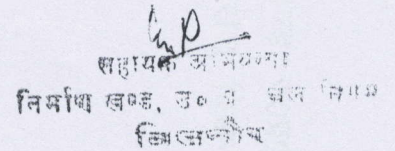 सहायक अभियन्ता
निर्माण खण्ड, उ० प्र० जल निगम
बिजनौर